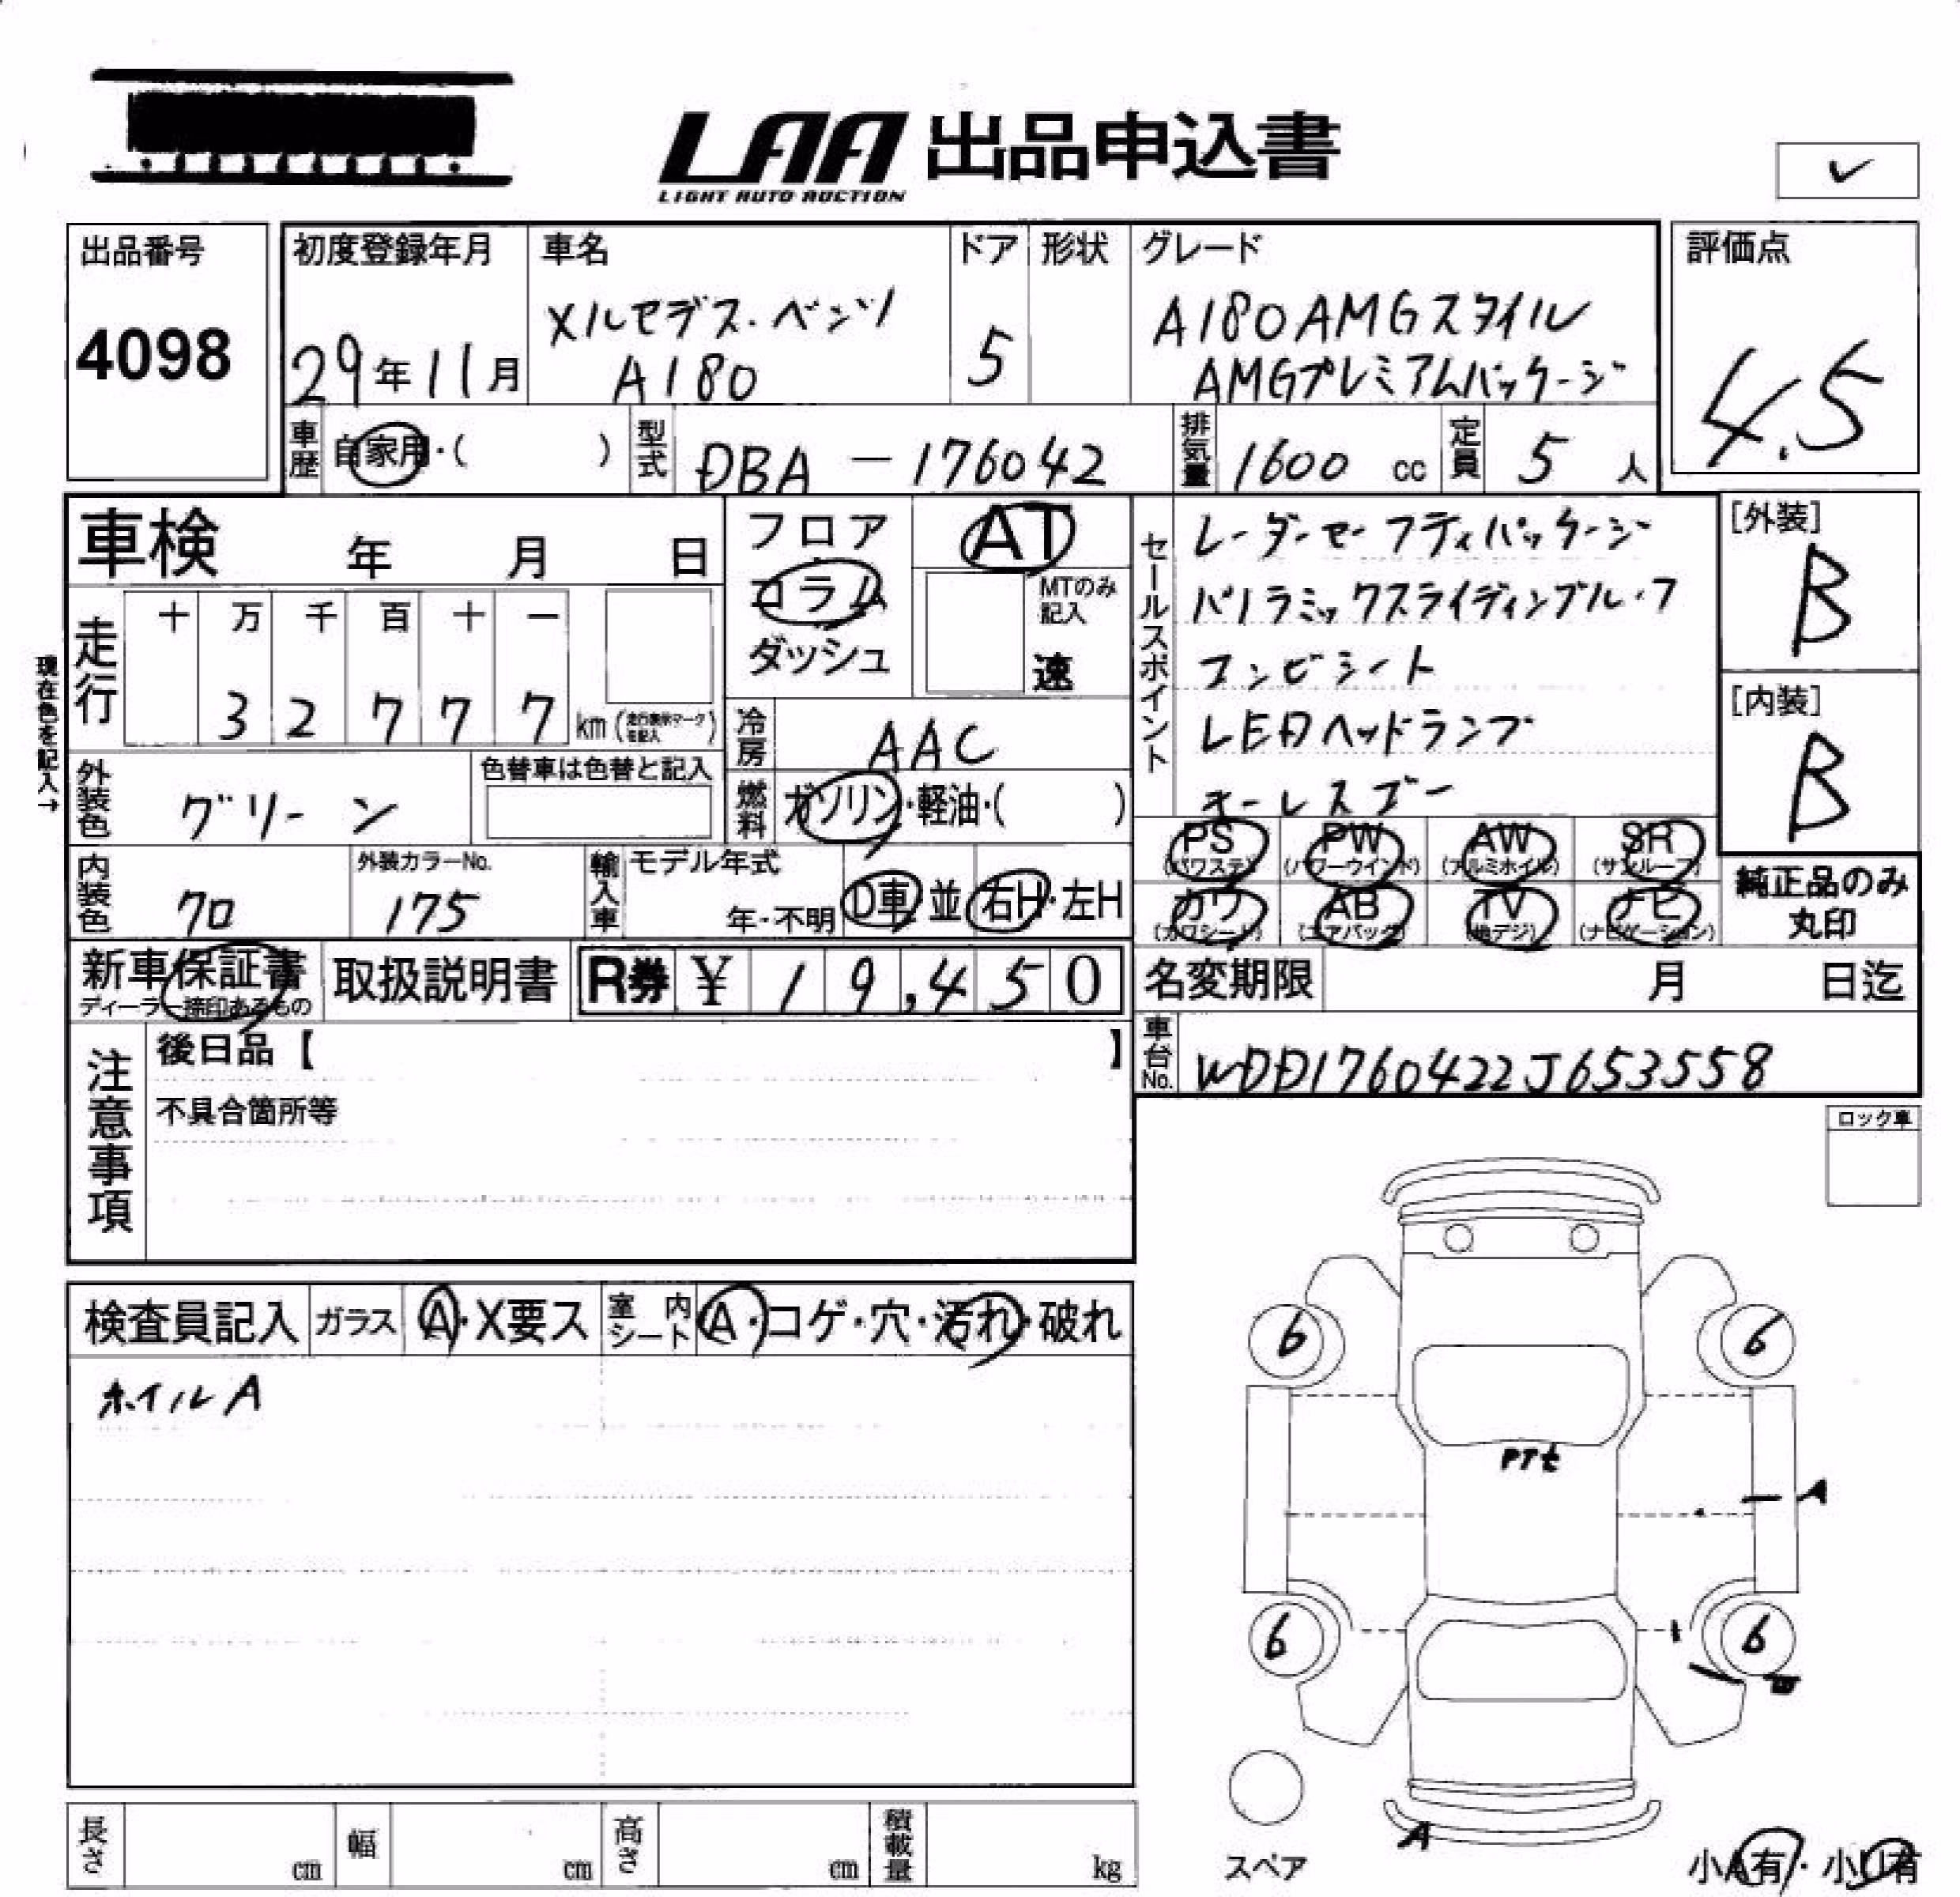 LAA 出品申込書
LIGHT AUTO AUCTION
✓
出品番号
4098
初度登録年月
29年11月
車名
メルセデス・ベンツ
A180
ドア
5
形状
グレード
A180 AMGスタイル
AMGプレミアムパッケージ
評価点
4.5
車歴 自家用・( )
型式 DBA-176042
排気量 1600 cc
定員 5 人
車検 年 月 日
フロア
コラム
ダッシュ
AT
MTのみ記入
速
現在色を記入→
走行
十 万 千 百 十 一
3 2 7 7 7 km(走行表示マークを記入)
冷房 AAC
燃料 ガソリン・軽油・( )
外装色 グリーン
色替車は色替と記入
内装色 クロ
外装カラーNo.
175
輸入車 モデル年式
年・不明
D車 並 右H・左H
セールスポイント
レーダーセーフティパッケージ
パノラミックスライディングルーフ
コンビシート
LEDヘッドランプ
キーレスゴー
[外装]
B
[内装]
B
PS PW AW SR
(パワステ) (パワーウインド) (アルミホイル) (サンルーフ)
カワ AB TV ナビ
(カワシート) (エアバック) (地デジ) (ナビゲーション)
純正品のみ
丸印
新車保証書
ディーラー捺印あるもの
取扱説明書
R券 ¥19,450
名変期限 月 日迄
車台No. WDD1760422J653558
注意事項
後日品【 】
不具合箇所等
ロック車
検査員記入 ガラス A・X要ス 室内シート A・コゲ・穴・汚れ・破れ
ホイルA
6 6
PTセ
A
6 6
スペア
A
小A有・小U有
長さ cm 幅 cm 高さ cm 積載量 kg